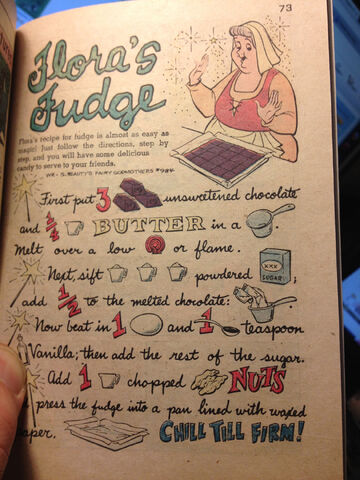 73
Flora's
Fudge
Flora's recipe for fudge is almost as easy as
magic! Just follow the directions, step by
step, and you will have some delicious
candy to serve to your friends.
WK-S. BEAUTY'S FAIRY GODMOTHERS #984
First put 3 unsweetened chocolate
and 1/2 BUTTER in a
Melt over a low or flame.
Next sift powdered XXX SUGAR;
add 1/2 to the melted chocolate:
Now beat in 1 and 1 teaspoon
Vanilla; then add the rest of the sugar.
Add 1 chopped NUTS
press the fudge into a pan lined with waxed
paper. CHILL TILL FIRM!